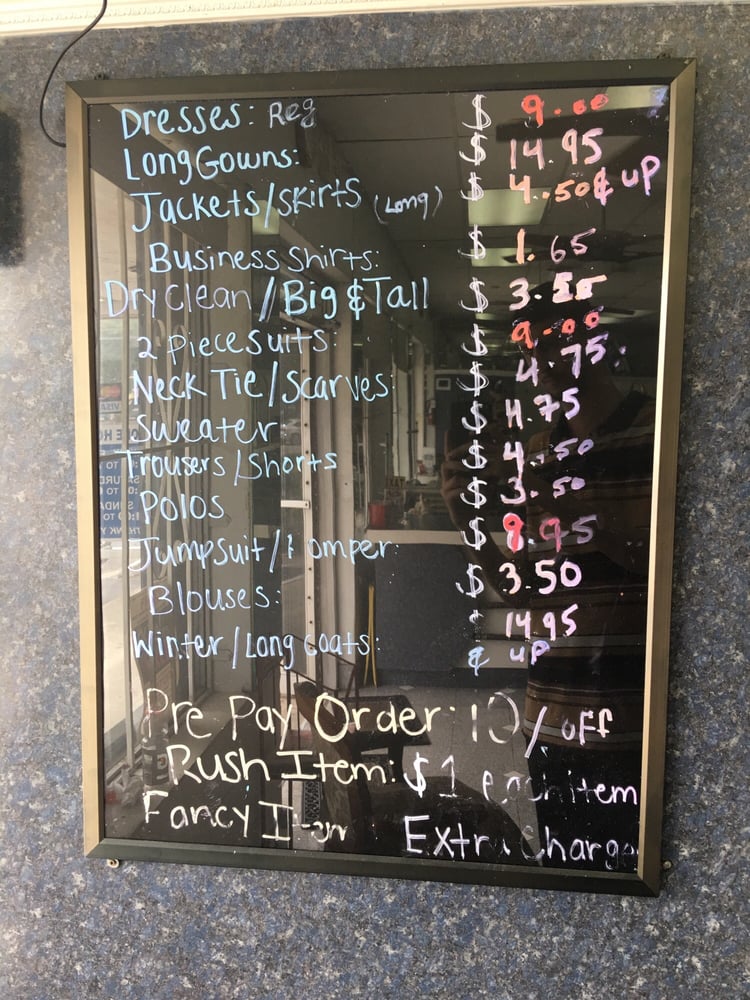 Dresses: Reg $ 9.00
Long Gowns: $ 14.95
Jackets/Skirts (Long) $ 4.50 ¢ up
Business Shirts: $ 1.65
Dry Clean/Big & Tall $ 3.50
2 piece suits: $ 9.00
Neck Tie/Scarves: $ 4.75
Sweater $ 4.75
Trousers/Shorts $ 4.50
Polos $ 3.50
Jumpsuit/Romper: $ 9.95
Blouses: $ 3.50
Winter/Long Coats: 14.95
¢ up
Pre Pay Order: 10/ off
Rush Item: $1 each item
Fancy Item Extra Charge